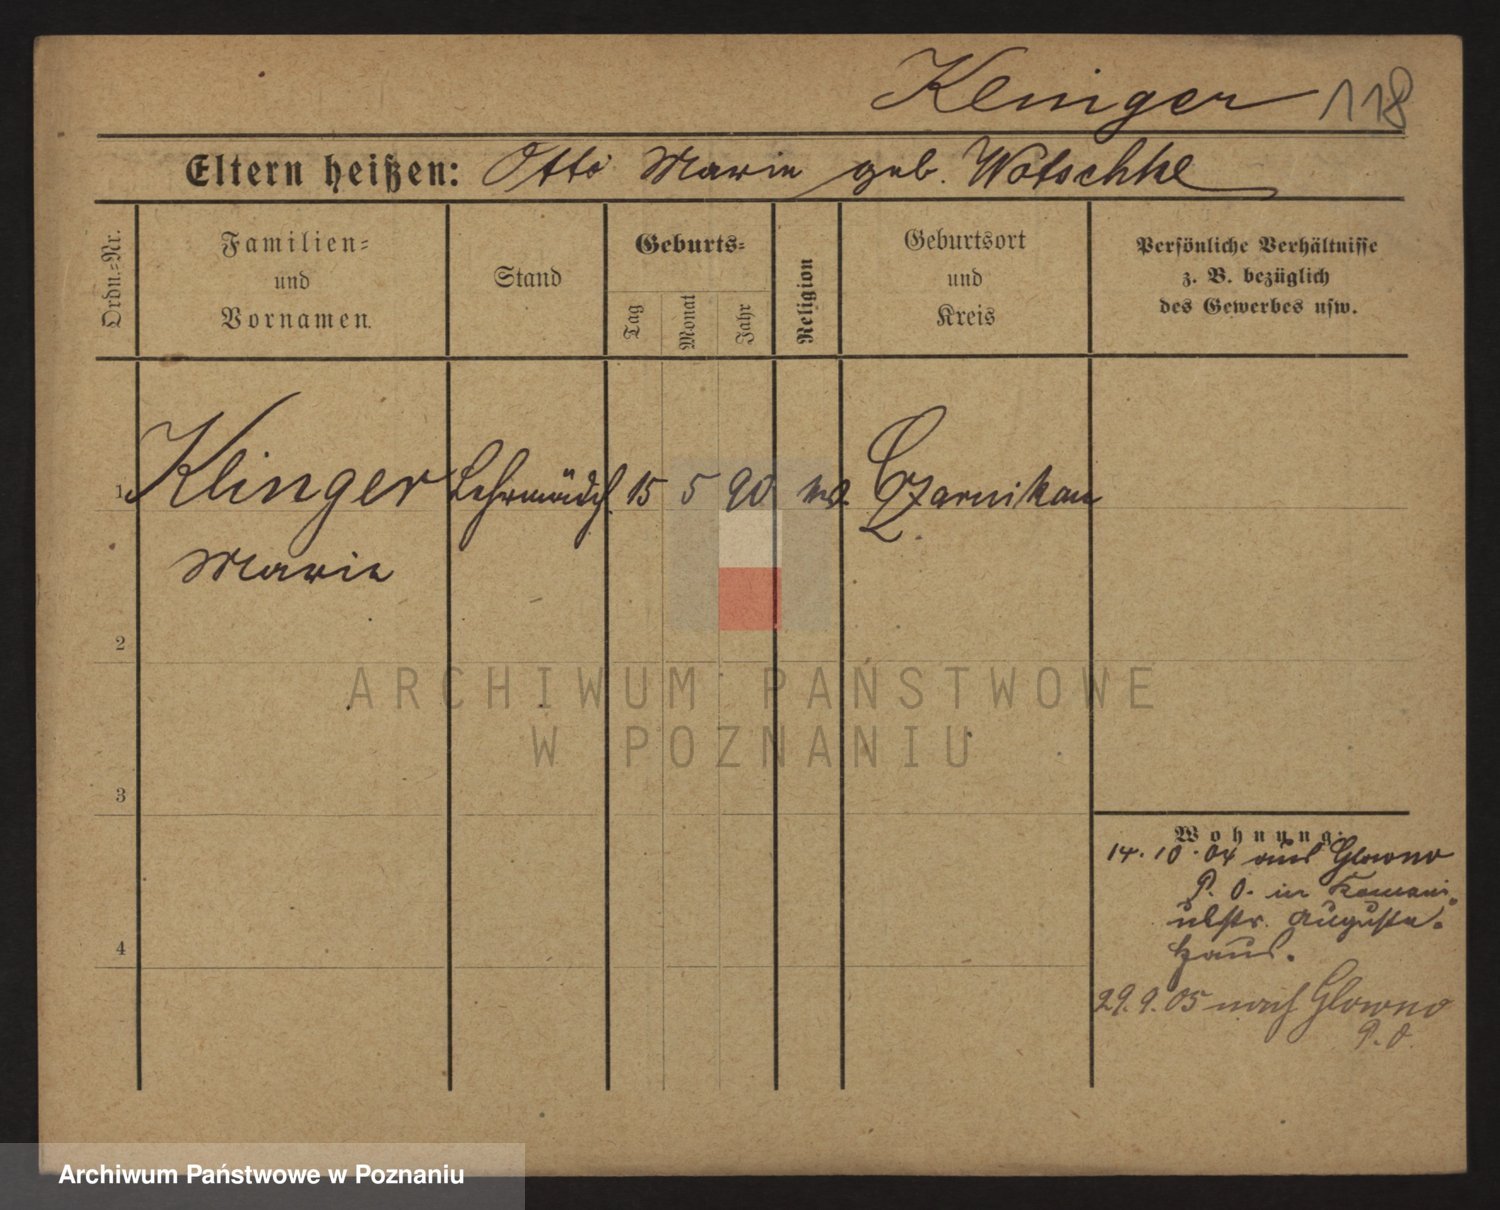 Klinger 118
Eltern heißen: Otto Marie geb. Wotschke
Ordn.=Nr.
Familien=
und
Vornamen.
Stand
Geburts=
Tag
Monat
Jahr
Religion
Geburtsort
und
Kreis
Persönliche Verhältnisse
z. B. bezüglich
des Gewerbes usw.
1 Klinger Lehrmädch. 15 5 90 Czarnikau
Marie
2
ARCHIWUM PAŃSTWOWE
W POZNANIU
3
Wohnung:
14.10.04 aus Glowno
P. O. in
Augusta=
haus.
4
29.9.05 nach Glowno
P. O.
Archiwum Państwowe w Poznaniu